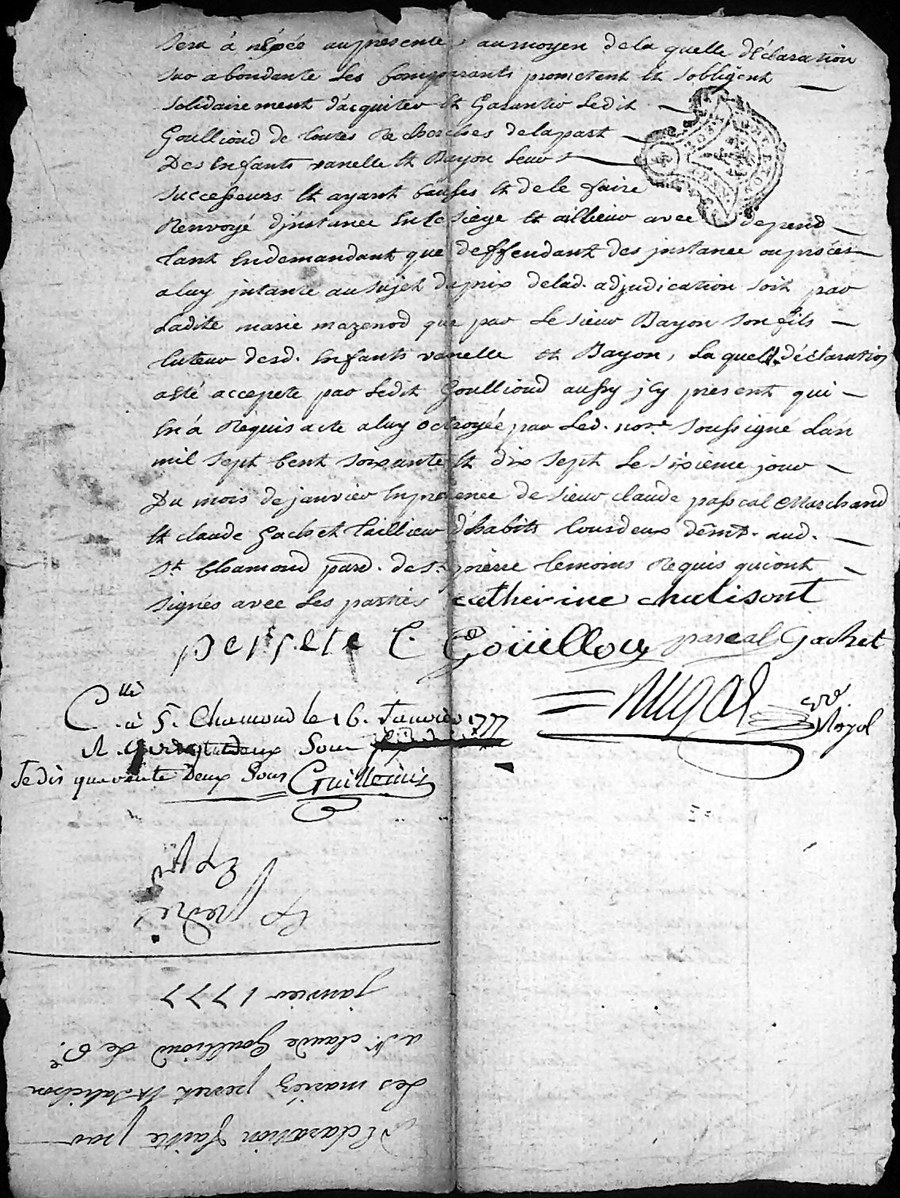 sera à au présente, au moyen de la quelle déclaration
sur abondante Les Comparants prometent Et sobligent
solidairement d'acquiter Et Garantir Ledit
Goullioud de toutes Recherches de la part
Des Enfants vanelle Et Bayon Leurs
successeurs Et ayant Causes Et de le faire
Renvoyé d'jnstance En ce siege Et ailleur avec depend
tant En demandant que deffendant des jnstance ou procès
a luy jntanté au sujet du prix de lad. adjudication soit par
Ladite marie mazenod que par Le sieur Bayon son fils
tuteur desd. Enfants vanelle Et Bayon, La quelle déclaration
a été accepeté par Ledit Goullioud aussy jcy présent qui
En à Requis acte a luy octroyée par Led. nore soussigné L'an
mil sept Cent soixante Et dix sept Le sixieme jour
Du mois de janvier En présence de sieur claude pascal Marchand
Et claude Gachet tallieur d'habits tous deux demt. aud.
St. Chamond par. de St. pierre temoins Requis qui ont
signés avec Les parties catherine chalisont
perrete C. Goüillou pascal Gachet
C.lle à St. Chamond le 16. Janvier 1777
R. quarante deux Sous
Je dis quarante Deux Sous Guillemin
Expédié
Déclaration faitte par
Les mariés peret Et
a Sr. claude Goullioud Le 6e.
janvier 1777